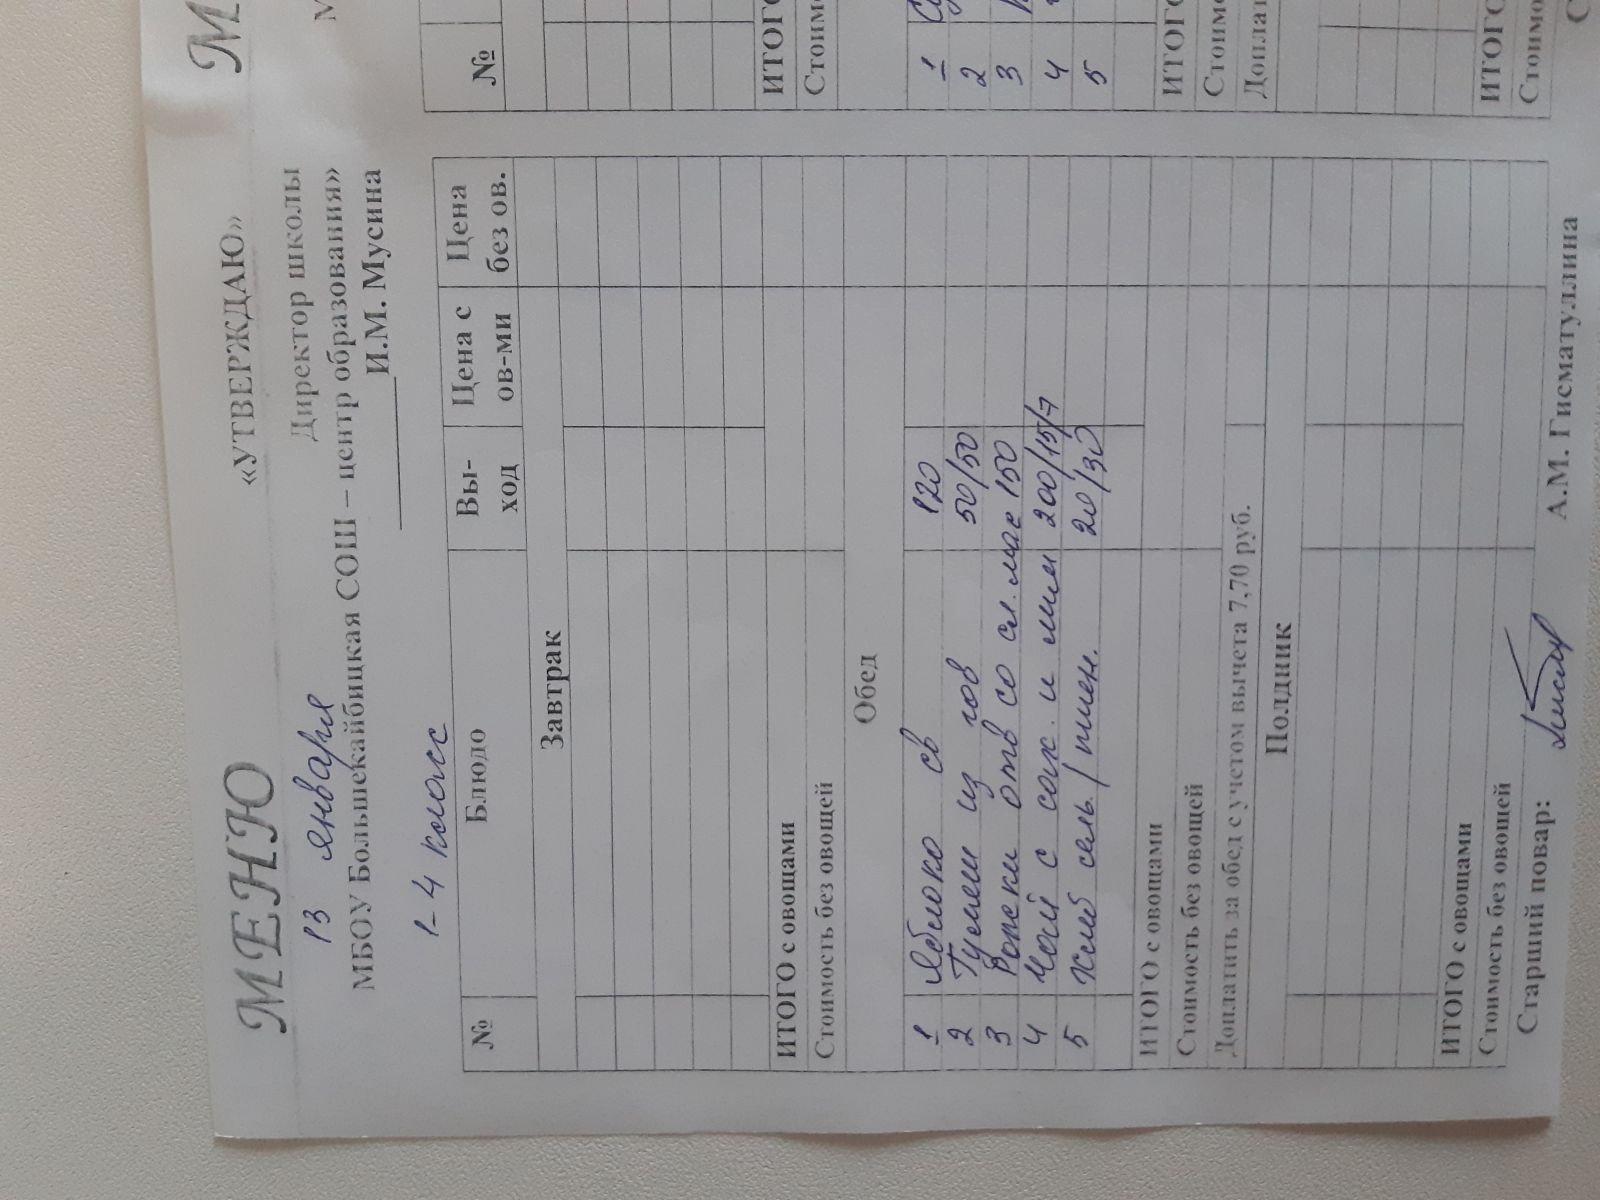 МЕНЮ «УТВЕРЖДАЮ»
13 января Директор школы
МБОУ Большекайбицкая СОШ – центр образования»
И.М. Мусина
1-4 класс
№ Блюдо Вы-ход Цена с ов-ми Цена без ов.
Завтрак
ИТОГО с овощами
Стоимость без овощей
Обед
1 Яблоко св 120
2 Гуляш из гов 50/50
3 Рожки отв со сл. мас 150
4 Чай с сах. и лим 200/15/7
5 Хлеб сель. / пшен. 20/30
ИТОГО с овощами
Стоимость без овощей
Доплатить за обед с учетом вычета 7,70 руб.
Полдник
ИТОГО с овощами
Стоимость без овощей
Старший повар: А.М. Гисматуллина
М
№
ИТОГО
1
2
3
4
5
ИТОГО
ИТОГО